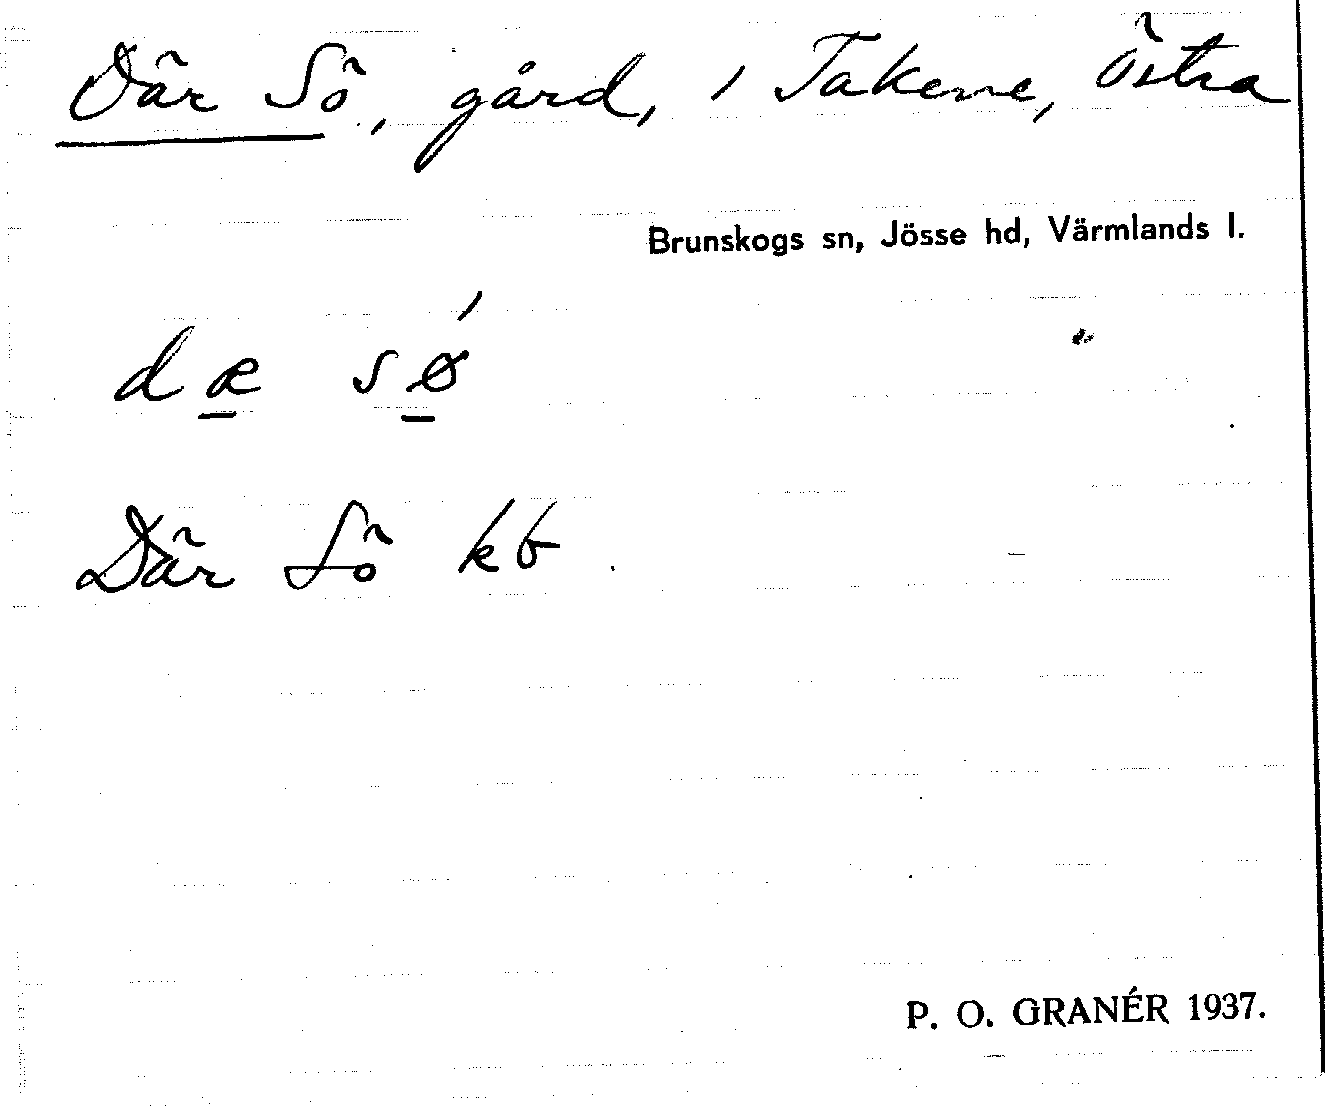 Där Sö, gård, i Takene, Östra
Brunskogs sn, Jösse hd, Värmlands l.
dæ sǿ
Där Sö kb.
P. O. GRANÉR 1937.